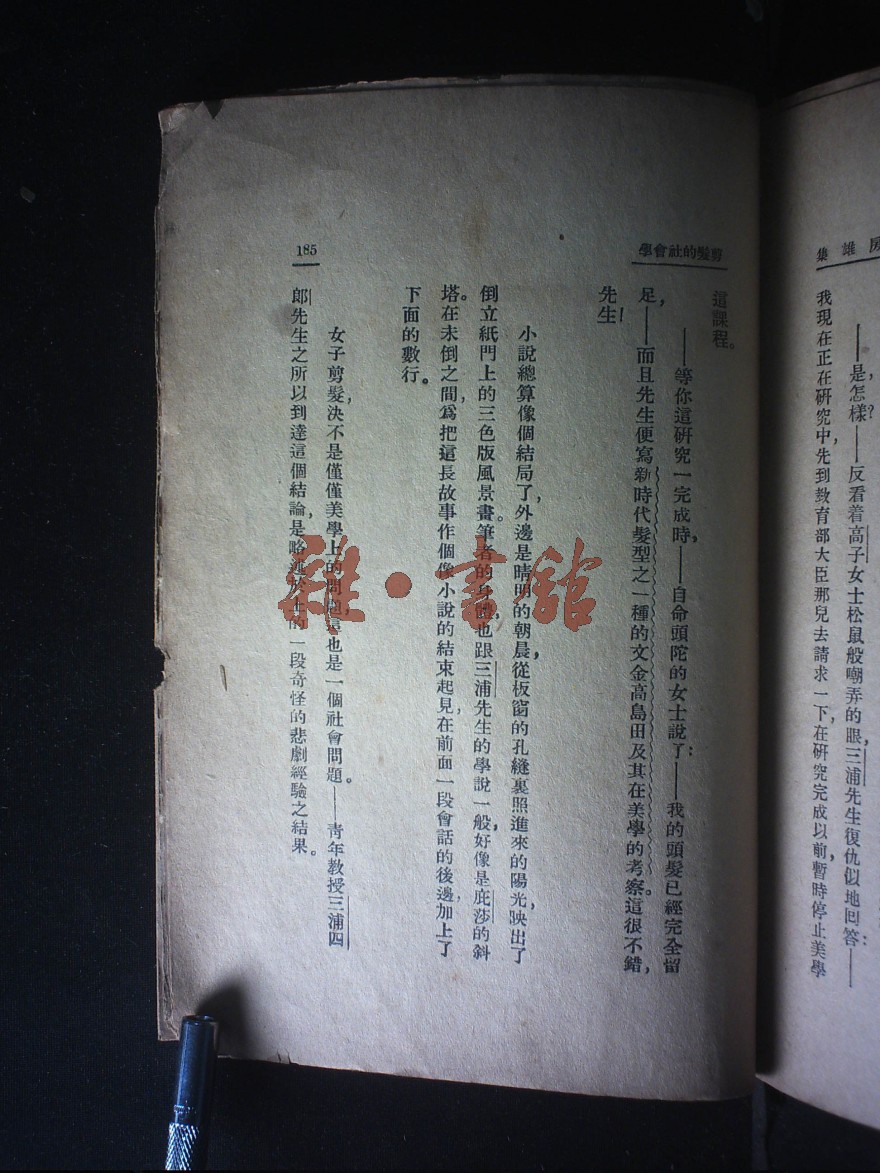 集雄房
——是怎樣？——反看着高子女士松鼠般嘲弄的眼，三浦先生復仇似地回答：——
我現在正在研究中，先到敎育部大臣那兒去請求一下，在研究完成以前，暫時停止美學
學會社的髮剪
這課程。
——等你這研究一完成時，——自命頭陀的女士說了：——我的頭髮已經完全留
足，——而且先生便寫新時代髮型之一種的文金高島田及其在美學的考察。這很不錯，
先生！
小說總算像個結局了，外邊是晴明的朝晨，從板窗的孔縫裏照進來的陽光，映出了
倒立紙門上的三色版風景畫。筆者的身體，也跟三浦先生的學說一般，好像是庇莎的斜
塔。在未倒之間，爲把這長故事作個像小說的結束起見，在前面一段會話的後邊，加上了
下面的數行。
女子剪髮，決不是僅僅美學上的問題，這也是一個社會問題。——靑年敎授三浦四
郎先生之所以到達這個結論，是略述於上的一段奇怪的悲劇經驗之結果。
185
雜·書館